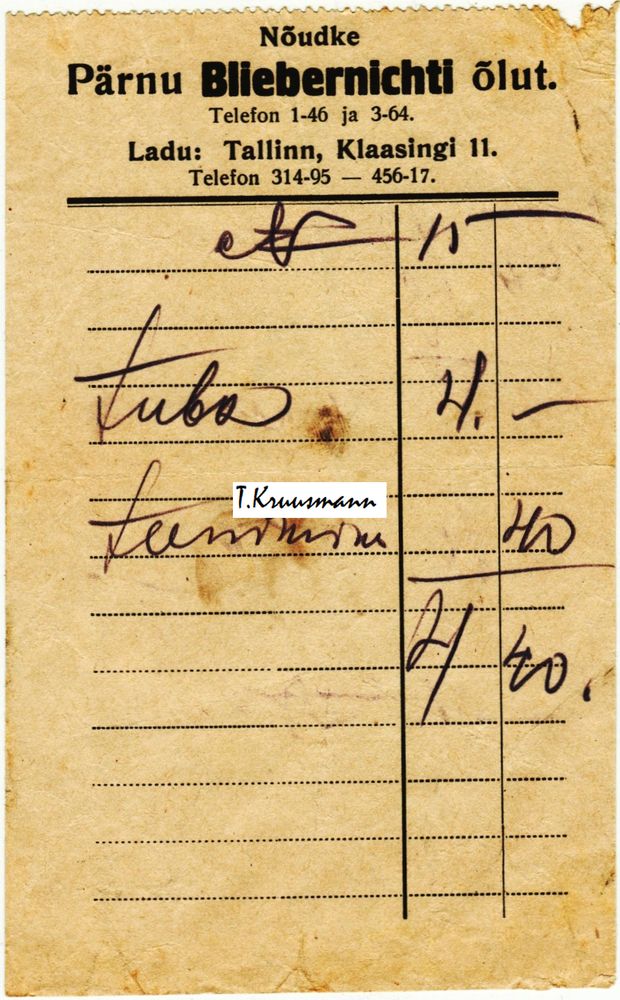 Nõudke
Pärnu Bliebernichti õlut.
Telefon 1-46 ja 3-64.
Ladu: Tallinn, Klaasingi 11.
Telefon 314-95 — 456-17.
№ 15
Tuba 4. —
T.Kruusmann
Teenimine 40
4 40.